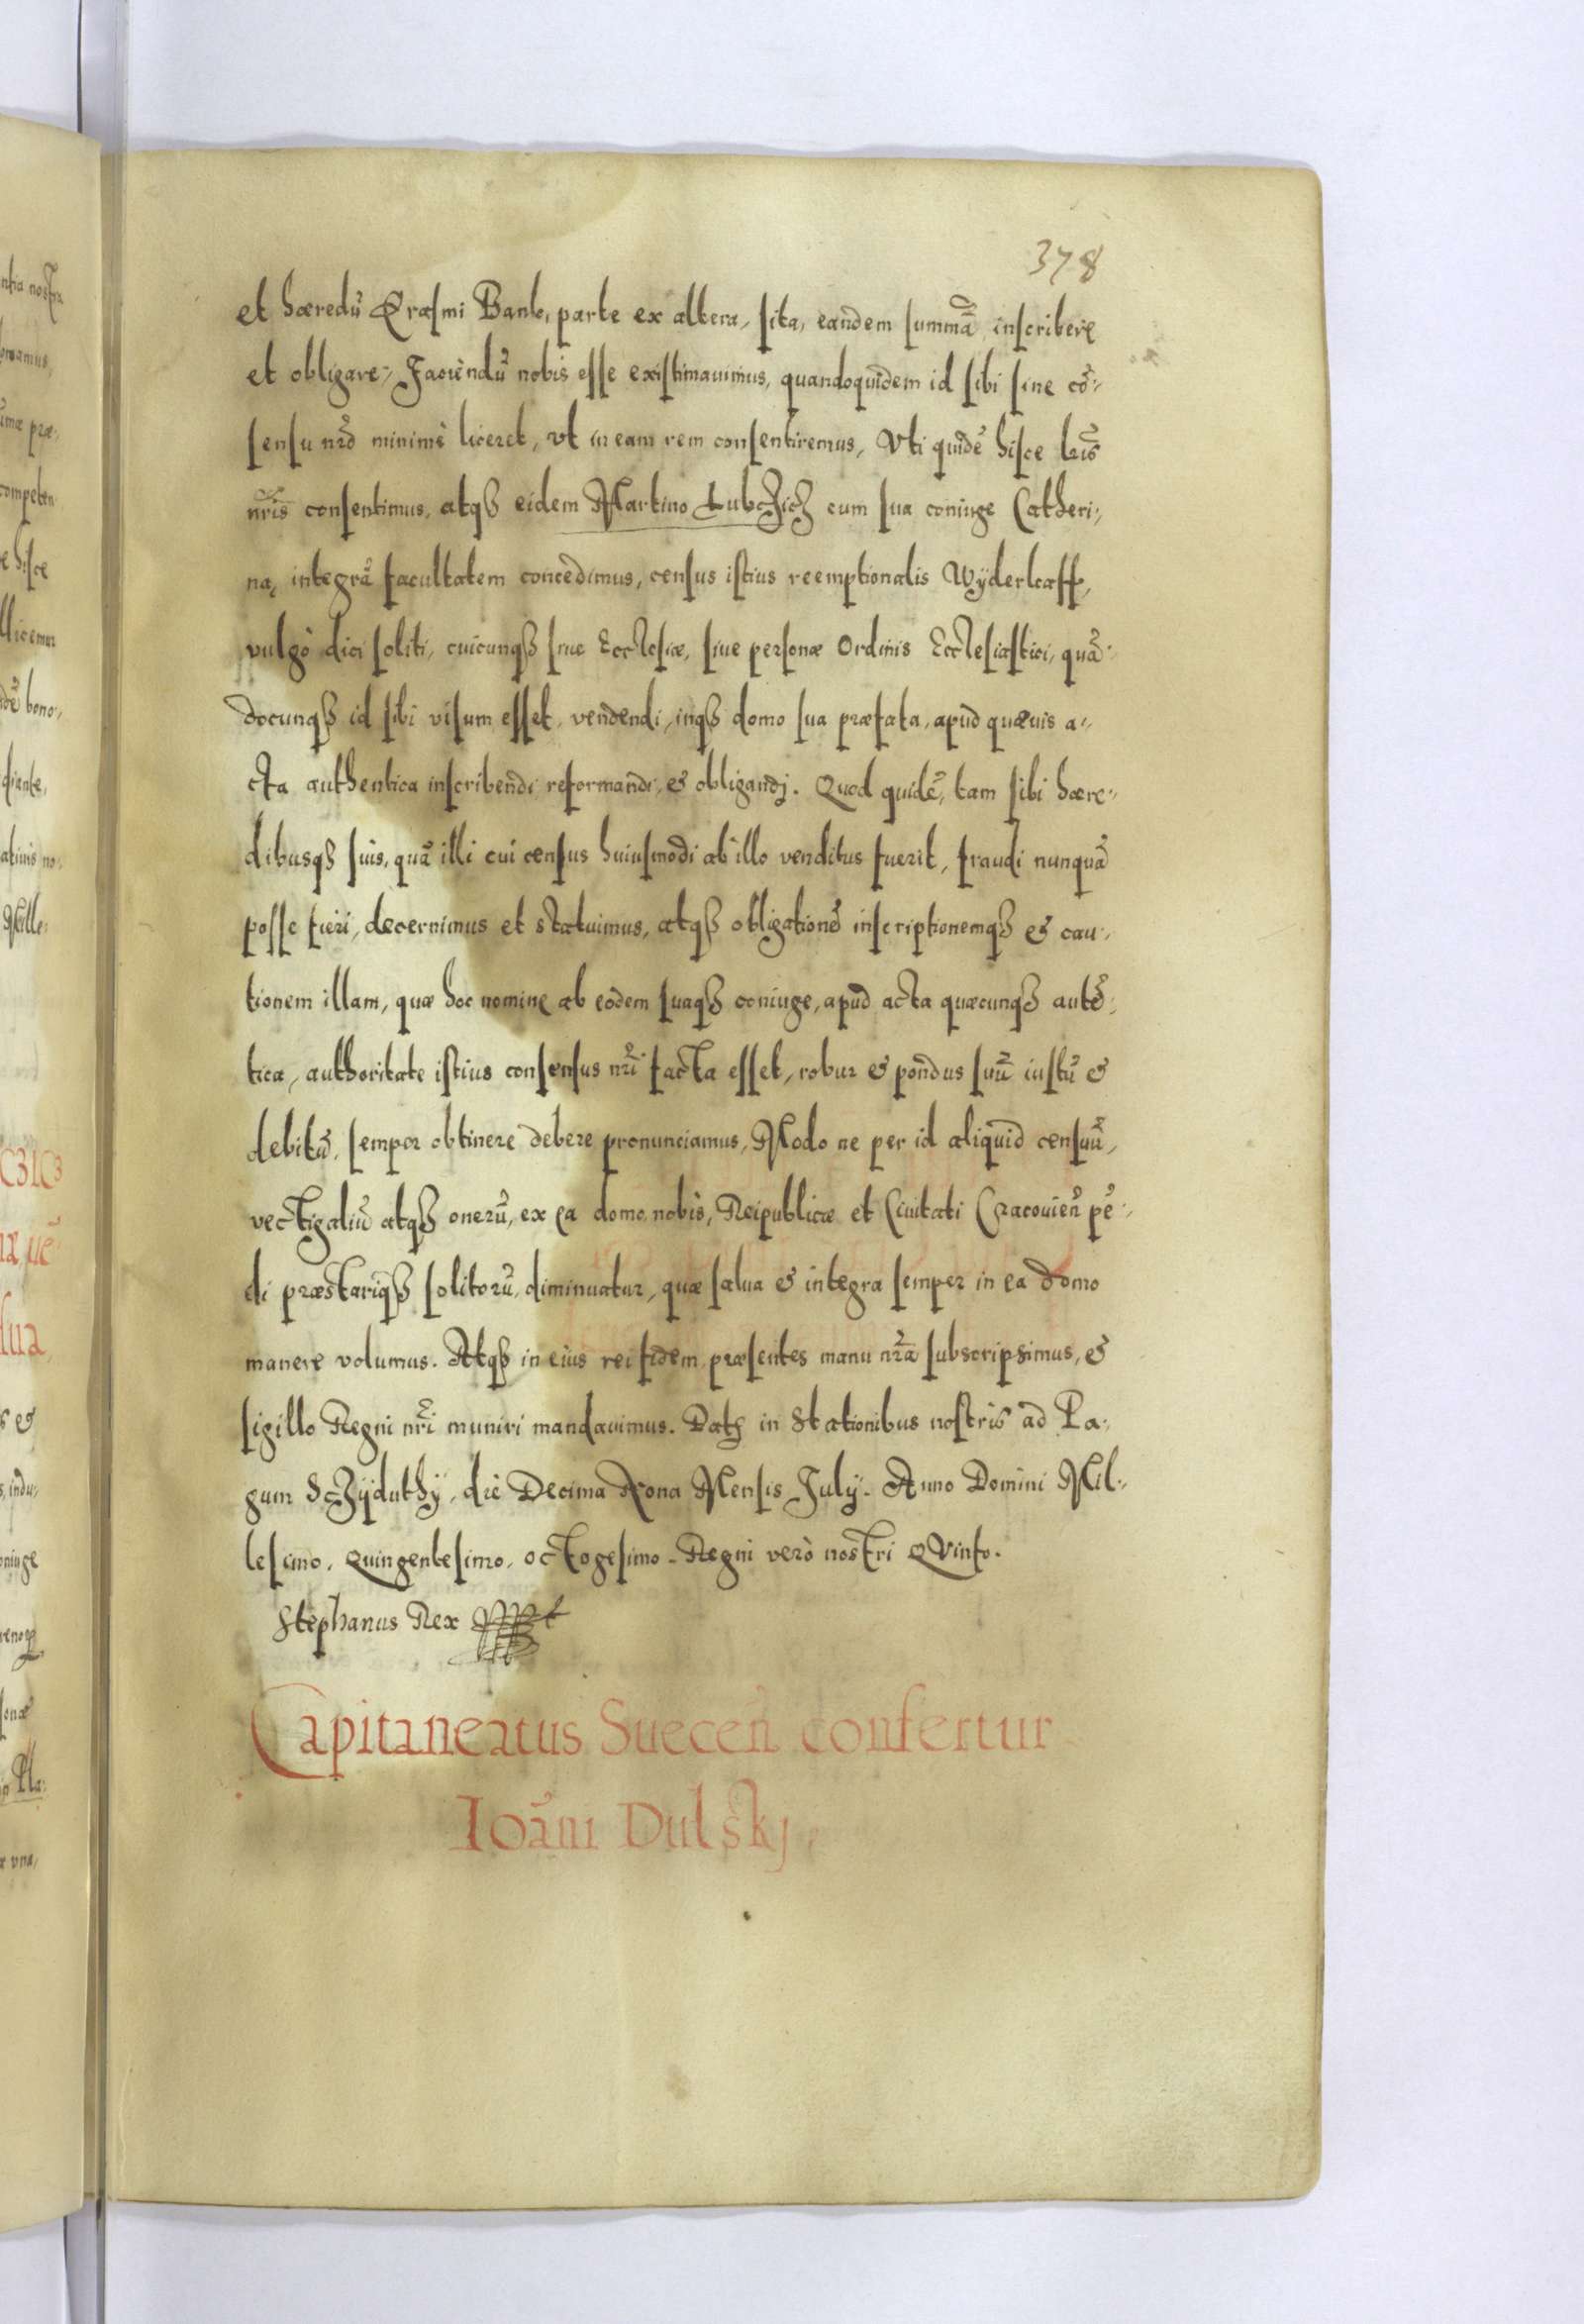 378
et hæredū Erasmi Bank, parte ex altera, sita, eandem summā inscribere
et obligare, Faciendū nobis esse existimauimus, quandoquidem id sibi sine cō-
sensu nrō minimè liceret, vt in eam rem consentiremus, Vti quidē hisce lrīs
nrīs consentimus, atqꝫ eidem Martino Lubczicz cum sua coniuge Catheri-
nę, integrā facultatem concedimus, census istius reemptionalis Wÿderkaff,
vulgò dici soliti, cuicunqꝫ siue Ecclesiæ, siue personæ Ordinis Ecclesiastici, quā-
docunqꝫ id sibi visum esset, vendendi, inqꝫ domo sua præfata, apud quæuis a-
cta authentica inscribendi, reformandi, et obligandj. Quod quidē, tam sibi hære-
dibusqꝫ suis, quā illi cui census huiusmodi ab illo venditus fuerit, fraudi nunquā
posse fieri, decernimus et statuimus, atqꝫ obligationē inscriptionemqꝫ et cau-
tionem illam, quæ hoc nomine ab eodem suaqꝫ coniuge, apud acta quæcunqꝫ autē-
tica, authoritate istius consensus nrī facta esset, robur et pondus suū iustū et
debitū, semper obtinere debere pronunciamus, Modo ne per id aliquid censuū,
vectigaliū atqꝫ onerū, ex ea domo nobis, Reipublicæ et Ciuitati Cracouieñ pē-
di præstariqꝫ solitorū, diminuatur, quæ salua et integra semper in ea domo
manere volumus. Atqꝫ in eius rei fidem præsentes manu nrā subscripsimus, et
sigillo Regni nrī muniri mandauimus. Datꝫ in Stationibus nostris ad Pa-
gum Sczÿduthÿ, die Decima Nona Mensis Julÿ. Anno Domini Mil-
lesimo, Quingentesimo, octogesimo. Regni verò nostri Qvinto.
Stephanus Rex
Capitaneatus Sueceñ confertur
Ioāni Dulskj